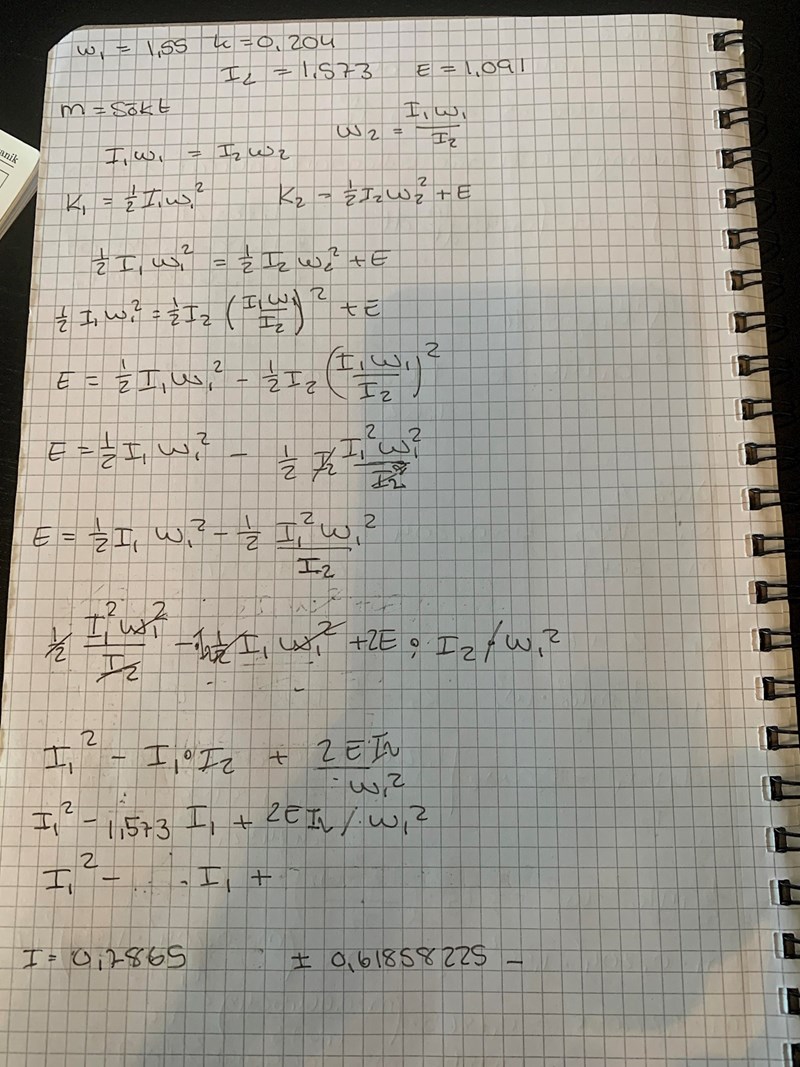 ω₁ = 1,55 k = 0,204
I₂ = 1,573 E = 1,091
m = sökt
ω₂ = I₁ω₁/I₂
anik
I₁ω₁ = I₂ω₂
K₁ = ½I₁ω₁² K₂ = ½I₂ω₂² + E
½ I₁ ω₁² = ½ I₂ ω₂² + E
½ I₁ω₁² = ½ I₂ (I₁ω₁/I₂)² + E
E = ½ I₁ω₁² - ½ I₂ (I₁ω₁/I₂)²
E = ½ I₁ ω₁² - ½ I₂ I₁²ω₁²/I₂²
E = ½ I₁ ω₁² - ½ I₁²ω₁²/I₂
½ I₁²ω₁²/I₂ - ½ I₁ ω₁² + 2E · I₂ / ω₁²
I₁² - I₁·I₂ + 2EI₂/ω₁²
I₁² - 1,573 I₁ + 2EI₂ / ω₁²
I₁² - ... · I₁ +
I = 0,7865 ± 0,61858225 -